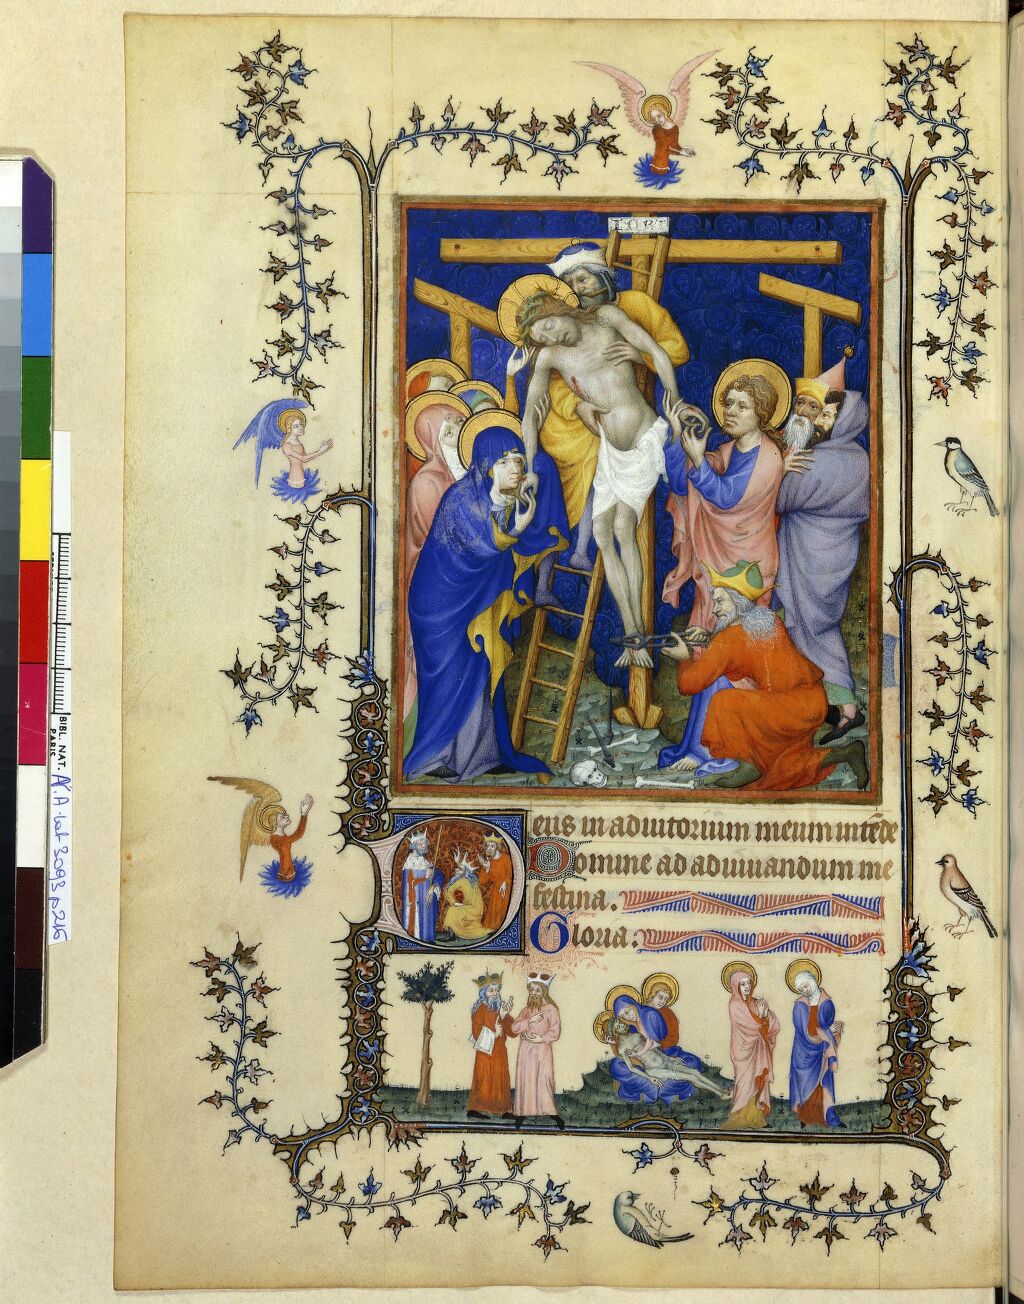 INRI
eus in adiutorium meum intēde
Domine ad adiuuandum me
festina.
Gloria.
BIBL. NAT.
PARIS
N. A. lat 3093 p 216